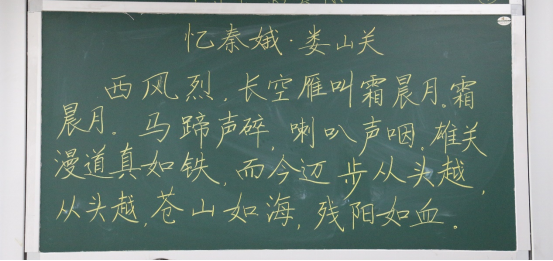 忆秦娥·娄山关
西风烈,长空雁叫霜晨月。霜
晨月。马蹄声碎,喇叭声咽,雄关
漫道真如铁,而今迈步从头越,
从头越,苍山如海,残阳如血。